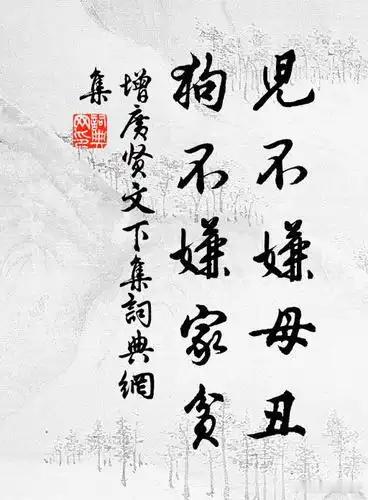 児不嫌母丑
狗不嫌家贫
增廣贤文下集詞典網
集